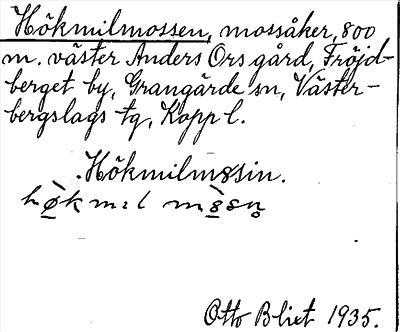 Hökmilmossen, mossåker, 800
m. väster Anders Ors gård, Fröjd-
berget by, Grangärde sn, Väster-
bergslags tg, Kopp l.
Hökmilmosin.
Otto Blixt 1935.